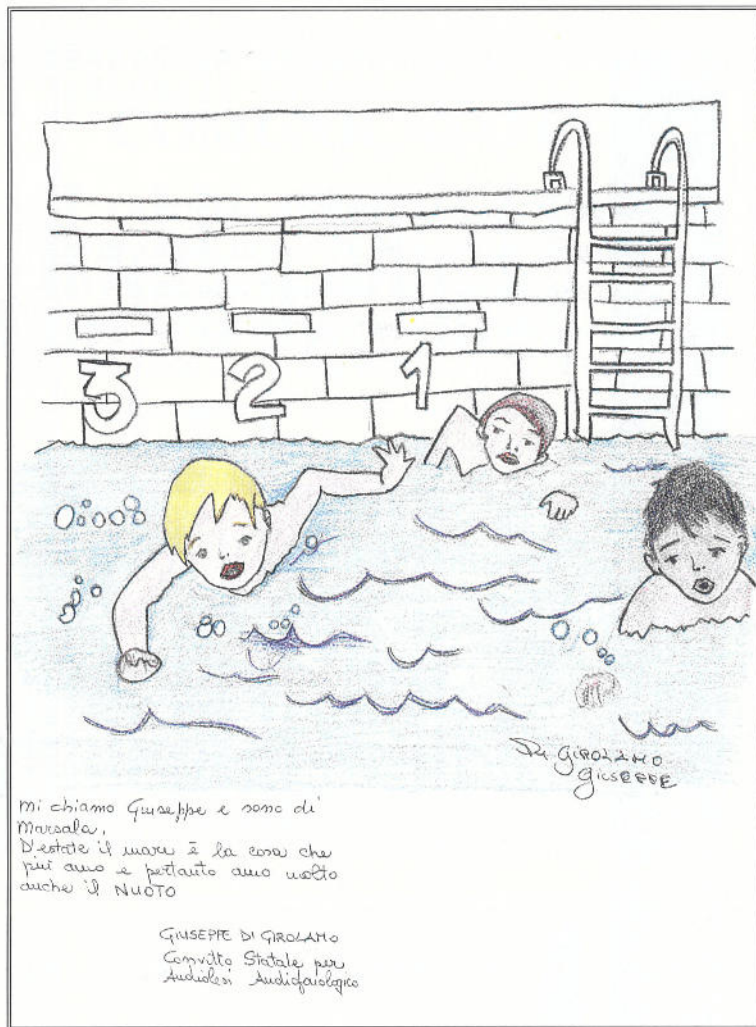 3 2 1
Di GIROLAMO
GIUSEPPE
mi chiamo Giuseppe e sono di
Marsala,
D'estate il mare è la cosa che
più amo e pertanto amo molto
anche il NUOTO
GIUSEPPE DI GIROLAMO
Convitto Statale per
Audiolesi